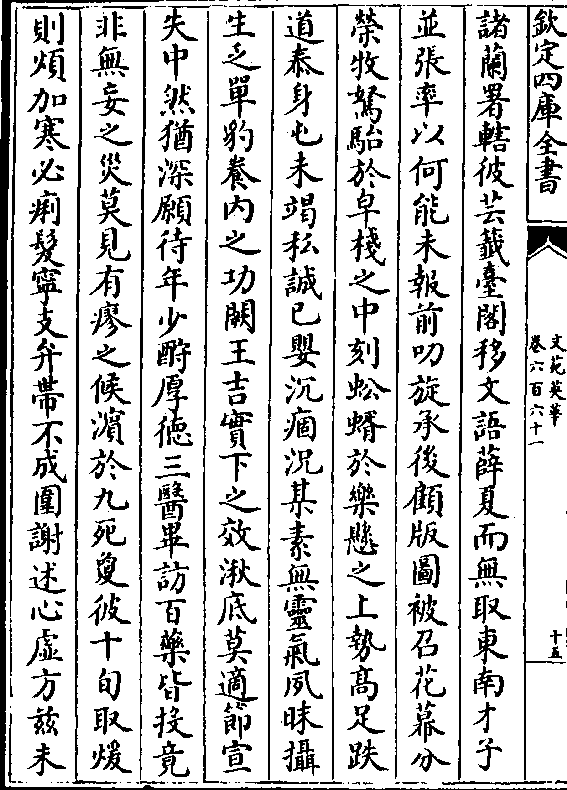 欽定四庫全書
文苑英華
卷六百六十一
十五
諸蘭署轄彼芸籤臺閣移文語薛夏而無取東南才子
並張率以何能未報前叨旋承後顧版圖被召花幕分
榮牧駑駘於皁棧之中刻蚣蝑於樂懸之上勢髙足跌
道泰身屯未竭私誠已嬰沉痼況某素無靈氣夙昧攝
生乏單豹養内之功闕王吉實下之效湫底莫適節宣
失中然猶深願待年少酧厚德三醫畢訪百藥皆投竟
非無妄之災莫見有瘳之候濵於九死敻彼十旬取煖
則煩加寒必痢髮寧支弁帶不成圍謝述心虚方兹未